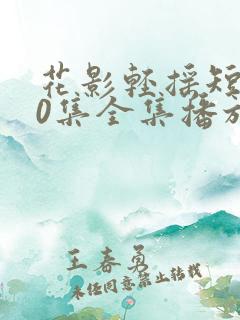 花影轻摇短
0集全集播放
王春勇
未经同意禁止转载